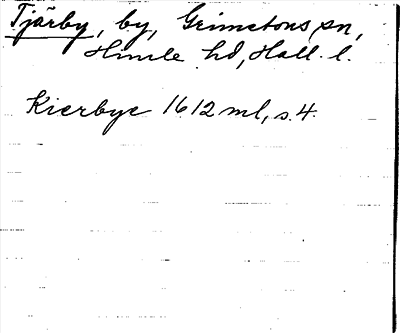 Tjärby, by, Grimetons sn,
Himle hd, Hall. l.
Kierbye 1612 ml, s. 4.